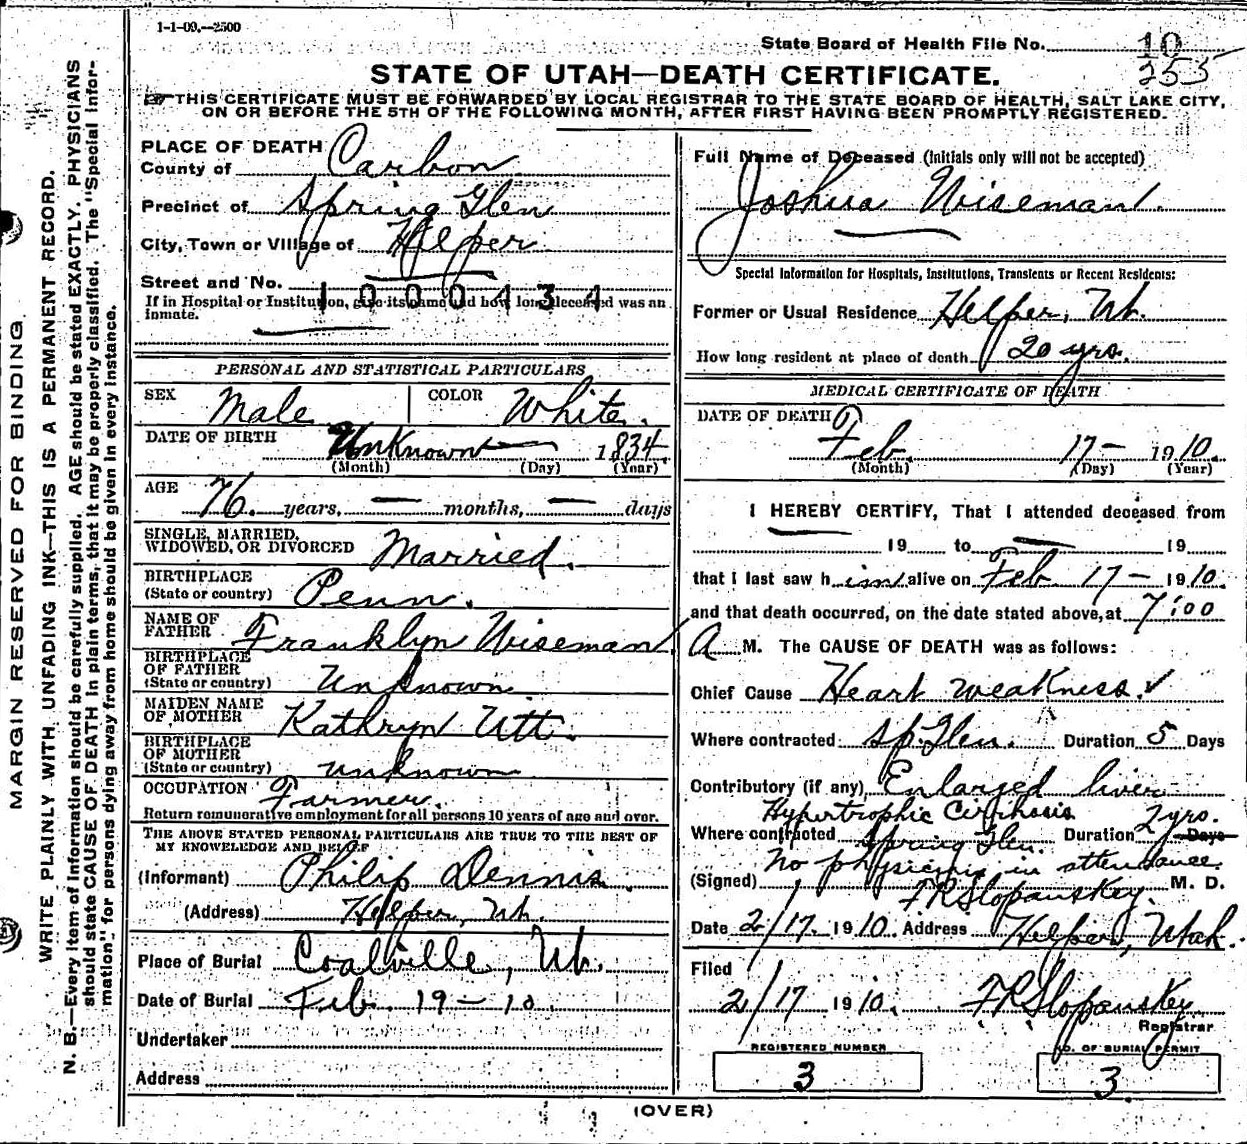 1-1-09.--2500
State Board of Health File No. 10
255
STATE OF UTAH—DEATH CERTIFICATE.
☞THIS CERTIFICATE MUST BE FORWARDED BY LOCAL REGISTRAR TO THE STATE BOARD OF HEALTH, SALT LAKE CITY,
ON OR BEFORE THE 5TH OF THE FOLLOWING MONTH, AFTER FIRST HAVING BEEN PROMPTLY REGISTERED.
MARGIN RESERVED FOR BINDING.
WRITE PLAINLY WITH UNFADING INK—THIS IS A PERMANENT RECORD.
N. B.—Every item of information should be carefully supplied. AGE should be stated EXACTLY. PHYSICIANS
should state CAUSE OF DEATH in plain terms, that it may be properly classified. The "Special Infor-
mation," for persons dying away from home should be given in every instance.
PLACE OF DEATH
County of Carbon
Precinct of Spring Glen
City, Town or Village of Helper
Street and No.
1000434
If in Hospital or Institution, give its name and how long deceased was an
inmate.
PERSONAL AND STATISTICAL PARTICULARS
SEX Male COLOR White.
DATE OF BIRTH Unknown 1834
(Month) (Day) (Year)
AGE 76. years, — months, — days
SINGLE, MARRIED,
WIDOWED, OR DIVORCED Married.
BIRTHPLACE
(State or country) Penn.
NAME OF
FATHER Franklyn Wiseman.
BIRTHPLACE
OF FATHER
(State or country) Unknown
MAIDEN NAME
OF MOTHER Kathryn Utt.
BIRTHPLACE
OF MOTHER
(State or country) unknown
OCCUPATION Farmer.
Return remunerative employment for all persons 10 years of age and over.
THE ABOVE STATED PERSONAL PARTICULARS ARE TRUE TO THE BEST OF
MY KNOWLEDGE AND BELIEF
(Informant) Philip Dennis.
(Address) Helper, Ut.
Place of Burial Coalville, Ut.
Date of Burial Feb. 19 — 10.
Undertaker
Address
Full Name of Deceased (Initials only will not be accepted)
Joshua Wiseman.
Special Information for Hospitals, Institutions, Transients or Recent Residents:
Former or Usual Residence Helper, Ut.
How long resident at place of death 20 yrs.
MEDICAL CERTIFICATE OF DEATH
DATE OF DEATH
Feb. 17— 1910.
(Month) (Day) (Year)
I HEREBY CERTIFY, That I attended deceased from
19 to — 19
that I last saw him alive on Feb 17 — 1910.
and that death occurred, on the date stated above, at 7:00
A M. The CAUSE OF DEATH was as follows:
Chief Cause Heart weakness. ✓
Where contracted Sp. Glen. Duration 5 Days
Contributory (if any) Enlarged liver
Hypertrophic Cirrhosis 2 yrs.
Where contracted Spring Glen. Duration Days
No physician in attendance.
(Signed) F R Slopanskey. M. D.
Date 2/17. 1910. Address Helper, Utah.
Filed
2/17 1910. F R Slopanskey
Registrar
REGISTERED NUMBER
3
NO. OF BURIAL PERMIT
3.
(OVER)